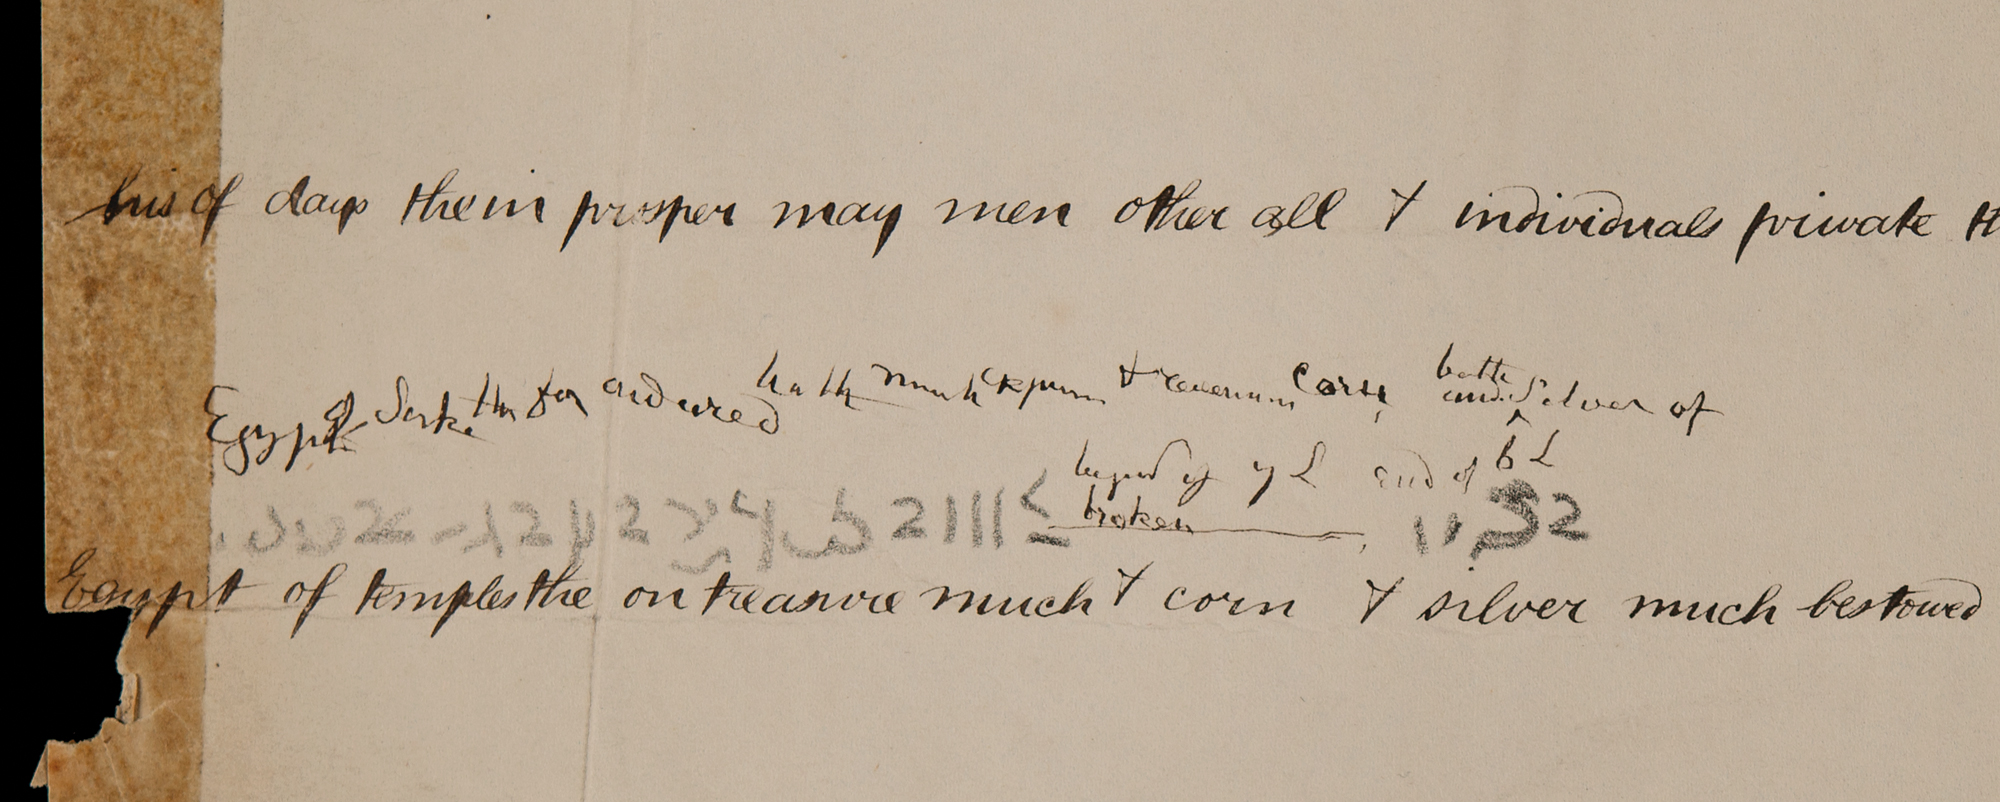 his of days their prosper may men other all & individuals private
Egypt of sake the for endured hath much expense & revenue corn, both and silver of
begins of 7 L end of 6 L
broken
Egypt of temples the on treasure much & corn & silver much bestowed